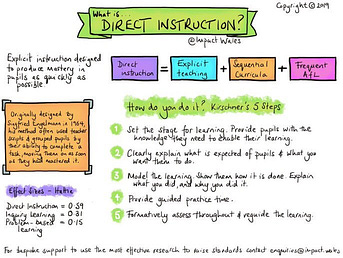 Copyright © 2019
What is
DIRECT INSTRUCTION?
@Impact Wales
Explicit instruction designed
to produce mastery in
pupils as quickly as
possible.
Direct
instruction
=
Explicit
teaching
+
Sequential
Curricula
+
Frequent
AfL
Originally designed by
Siegfried Engelmann in 1964,
his method often used teacher
scripts & grouped pupils by
their ability to complete a
task, moving them on as soon
as they had mastered it.
How do you do it? Kirschner's 5 Steps
1 Set the stage for learning. Provide pupils with the
knowledge they need to enable their learning.
2 Clearly explain what is expected of pupils & what you
want them to do.
3 Model the learning. Show them how it is done. Explain
what you did, and why you did it.
4 Provide guided practice time.
5 Formatively assess throughout & reguide the learning.
Effect Sizes - Hattie
Direct Instruction = 0.59
Inquiry Learning = 0.31
Problem-based = 0.15
learning
For bespoke support to use the most effective research to raise standards contact enquiries@impact.wales